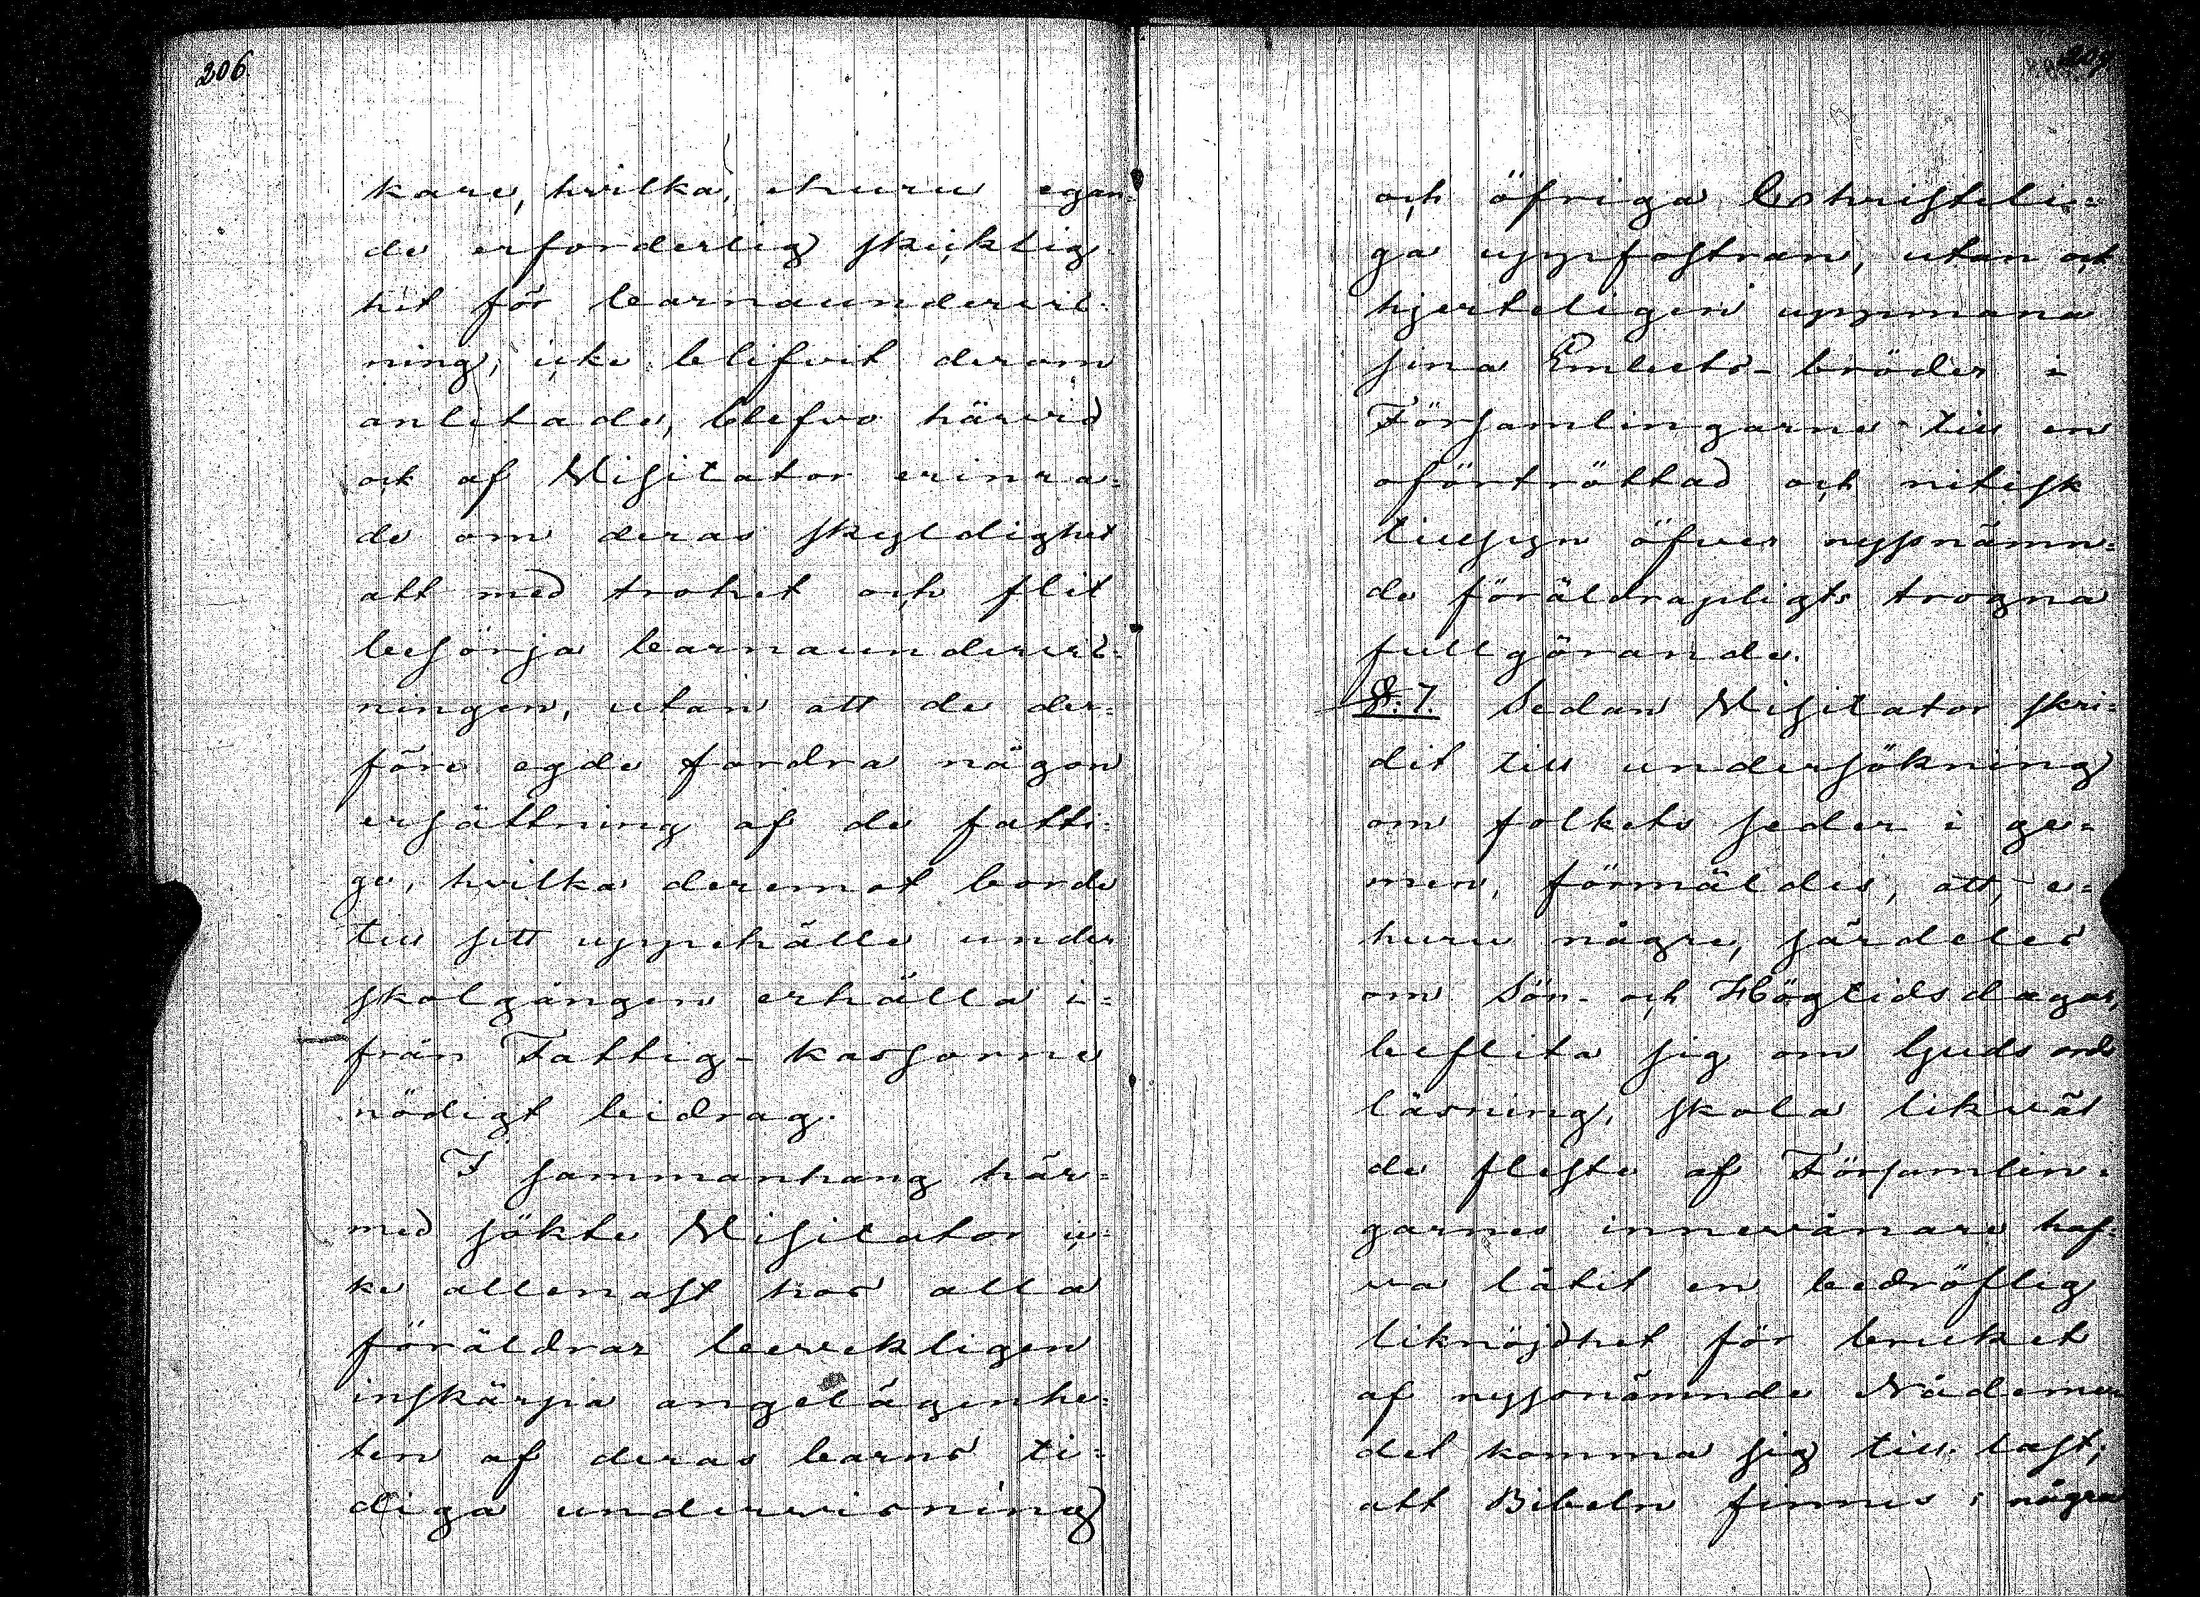 206
kare, hvilka, ehuru egan-
de erforderlig skicklig
het för barnaundervis-
ning, icke blifvit derom
anlitade, blefvo härvid
ock af Visitator erinra=
de om deras skyldighet
att med trohet och flit
besörja barnaundervis-
ningen, utan att de der=
före egde fordra någon
ersättning af de fatti=
ge, hvilka deremot borde
till sitt uppehälle under
skolgången erhålla i=
från Fattig-kassorne
nödigt bidrag.
I sammanhang här=
med sökte Visitator ic-
ke allenast hos alla
föräldrar beveckligen
inskärpa angelägenhe=
ten af deras barns ti=
diga undervisning
207
och öfriga Christeli=
ga uppfostran, utan ock
hjerteligen uppmana
sina Embets-bröder i
Församlingarne till en
oförtröttad och nitisk
tillsyn öfver nyssnämn=
de föräldrapligts trogna
fullgörande.
§. 7. Sedan Visitator skri=
dit till undersökning
om folkets seder i ge=
men, förmäldes, att, e=
huru någre, särdeles
om Sön- och Högtidsdagar,
beflita sig om Guds ords
läsning, skola likväl
de fleste af Församlin=
garnes innevånare haf=
va låtit en bedröflig
liknöjdhet för bruket
af nyssnämnde Nådeme-
del komma sig till last;
att Bibeln finnes i några